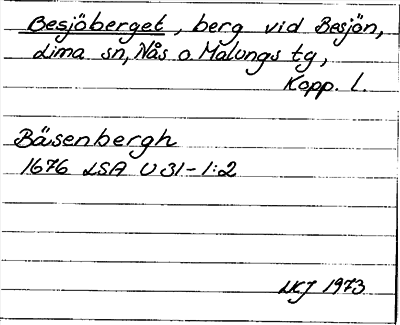 Besjöberget, berg vid Besjön,
Lima sn, Nås o. Malungs tg,
Kopp. l.
Bäsenbergh
1676 LSA U 31-1:2
LKJ 1973